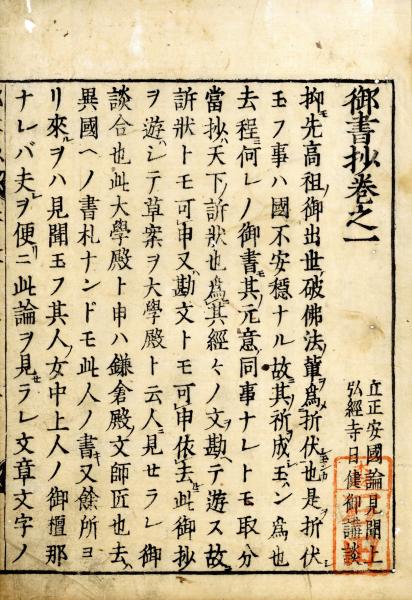 御書抄卷之一
立正安國論見聞上
弘經寺日健御講談
抑先高祖御出世破佛法黨爲折伏也是折伏
玉フ事ハ國不安穩ナル故其祈成玉ハン爲也
去程何レノ御書其元意同事ナレトモ取分
當抄天下訴狀也爲其經々ノ文勘テ遊ス故
訴狀トモ可申又勘文トモ可申依去此御抄
ヲ遊シテ草案ヲ大學殿ト云人見せラレ御
談合也此大學殿ト申ハ鎌倉殿文師匠也去
異國ヘノ書札ナンドモ此人ノ書又餘所ヨ
リ來ヲハ見聞玉フ其人女中上人ノ御檀那
ナレバ夫ヲ便ニ此論ヲ見ラレ文章文字ノ